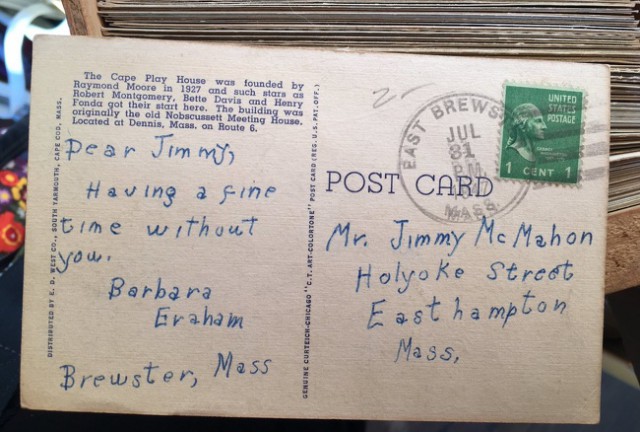 The Cape Play House was founded by
Raymond Moore in 1927 and such stars as
Robert Montgomery, Bette Davis and Henry
Fonda got their start here. The building was
originally the old Nobscussett Meeting House.
Located at Dennis, Mass. on Route 6.
Dear Jimmy,
Having a fine
time without
you.
Barbara
Graham
Brewster, Mass
DISTRIBUTED BY E. D. WEST CO., SOUTH YARMOUTH, CAPE COD, MASS.
GENUINE CURTEICH-CHICAGO "C.T. ART-COLORTONE" POST CARD (REG. U.S. PAT. OFF.)
2
EAST BREWS
JUL
31
P.M.
MASS.
UNITED
STATES
POSTAGE
1 CENT 1
POST CARD
Mr. Jimmy McMahon
Holyoke Street
Easthampton
Mass,